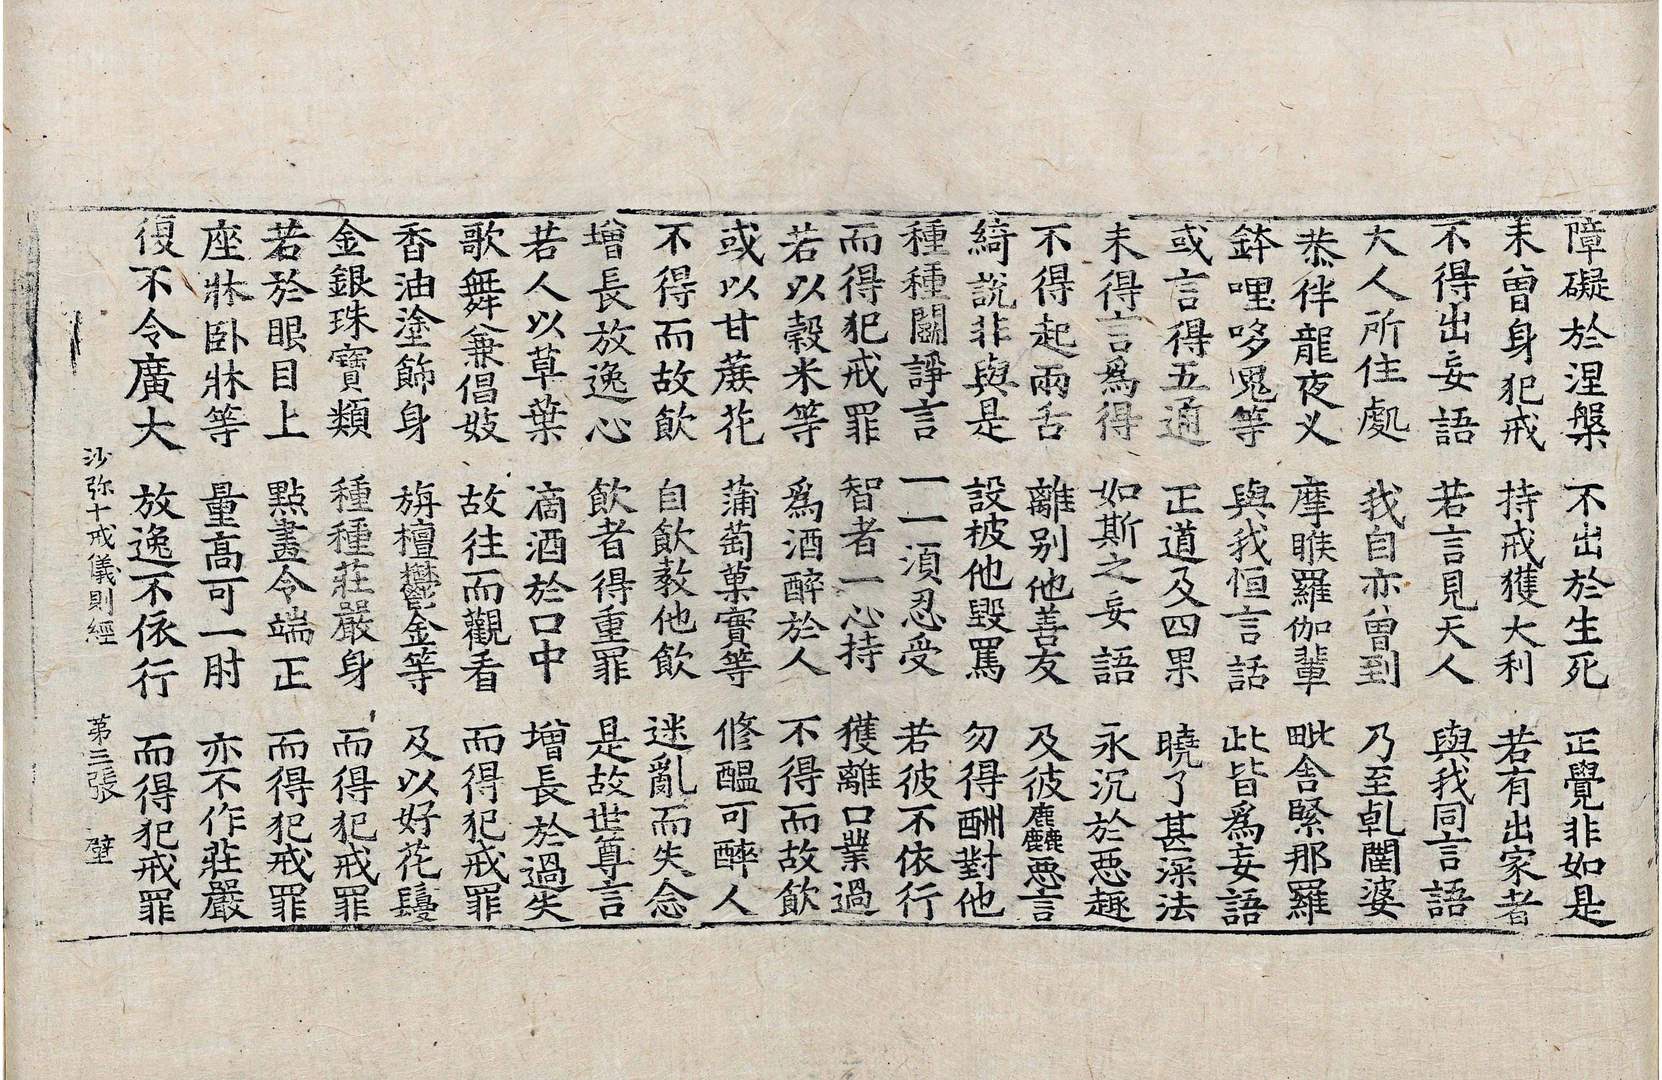 障礙於涅槃　不出於生死　正覺非如是
未曾身犯戒　持戒獲大利　若有出家者
不得出妄語　若言見天人　與我同言語
大人所住處　我自亦曾到　乃至乹闥婆
恭伴龍夜叉　摩睺羅伽輩　毗舍緊那羅
鉢哩哆鬼等　與我恒言話　此皆爲妄語
或言得五通　正道及四果　曉了甚深法
未得言爲得　如斯之妄語　永沉於惡趣
不得起兩舌　離别他善友　及彼麤惡言
綺說非與是　設被他毀罵　勿得酬對他
種種鬭諍言　一一須忍受　若彼不依行
而得犯戒罪　智者一心持　獲離口業過
若以穀米等　爲酒醉於人　不得而故飲
或以甘蔗花　蒲萄菓實等　修醞可醉人
不得而故飲　自飲教他飲　迷亂而失念
增長放逸心　飲者得重罪　是故世尊言
若人以草葉　滴酒於口中　增長於過失
歌舞兼倡妓　故往而觀看　而得犯戒罪
香油塗飾身　旃檀鬱金等　及以好花鬘
金銀珠寶類　種種莊嚴身　而得犯戒罪
若於眼目上　點畫令端正　而得犯戒罪
座牀卧牀等　量高可一肘　亦不作莊嚴
復不令廣大　放逸不依行　而得犯戒罪
沙弥十戒儀則經　第三張　壁